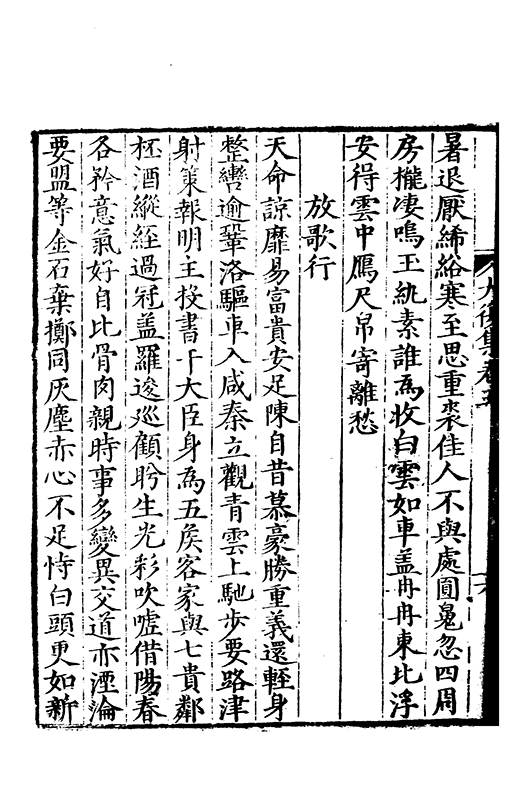 暑退厭絺綌寒至思重裘佳人不與處圓魄忽四周
房櫳凄嗚玉紈素誰爲收白雲如車蓋冉冉東北浮
安得雲中鴈尺帛寄離愁
放歌行
天命諒靡易富貴安足陳自昔慕豪勝重義還輕身
整轡逾鞏洛驅車入咸秦立觀青雲上馳步要路津
射策報明主投書干大臣身爲五矦客家與七貴鄰
杯酒縱經過冠蓋羅逡巡顧盻生光彩吹噓借陽春
各矜意氣好自比骨肉親時事多變異交道亦湮淪
要盟等金石棄擲同灰塵赤心不足恃白頭更如新
後集卷五